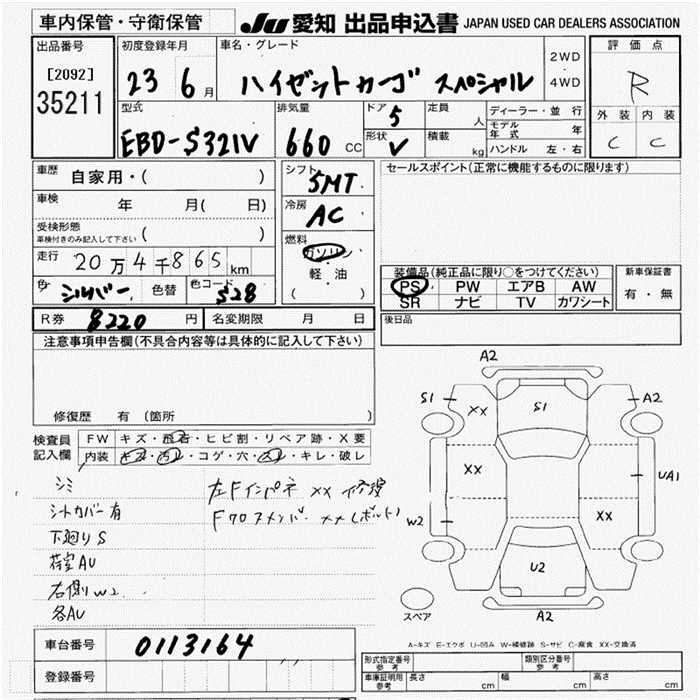 車内保管・守衛保管
JU 愛知 出品申込書 JAPAN USED CAR DEALERS ASSOCIATION
出品番号
[2092]
35211
初度登録年月
23 6月
車名・グレード
ハイゼットカーゴ スペシャル
2WD
4WD
評価点
R
外装 内装
C C
型式
EBD-S321V
排気量
660 CC
ドア
5
形状
V
定員
人
積載
kg
ディーラー・並行
モデル年式 年
ハンドル 左・右
車歴
自家用・( )
車検
年 月( 日)
受検形態
車検付きのみ記入して下さい ( )
走行
20万4千865km
色 シルバー 色替 色コード S28
シフト
5MT
冷房
AC
燃料
ガソリン
・
軽・油
( )
セールスポイント(正常に機能するものに限ります)
装備品(純正品に限り○をつけてください)
PS PW エアB AW
SR ナビ TV カワシート
新車保証書
有・無
R券 8220円 名変期限 月 日
後日品
注意事項申告欄(不具合内容等は具体的に記入して下さい)
修復歴 有〔箇所
検査員
記入欄
FW キズ・飛石・ヒビ割・リペア跡・X要
内装 キズ・汚れ・コゲ・穴・スレ・キレ・破レ
シミ
シートカバー有
下廻りS
荷室AU
右側りW2
各AU
左Fインパネ XX 修理
Fクロスメンバー XX(ボルト)
A2
S1 XX S1 A2
XX UA1
W2 XX
U2
スペア A2
A-キズ E-エクボ U-凹み W-補修跡 S-サビ C-腐食 XX-交換済
車台番号 0113164
登録番号
形式指定番号
参考
類別区分番号
参考
車庫証明用
参考
長さ cm 幅 cm 高さ cm